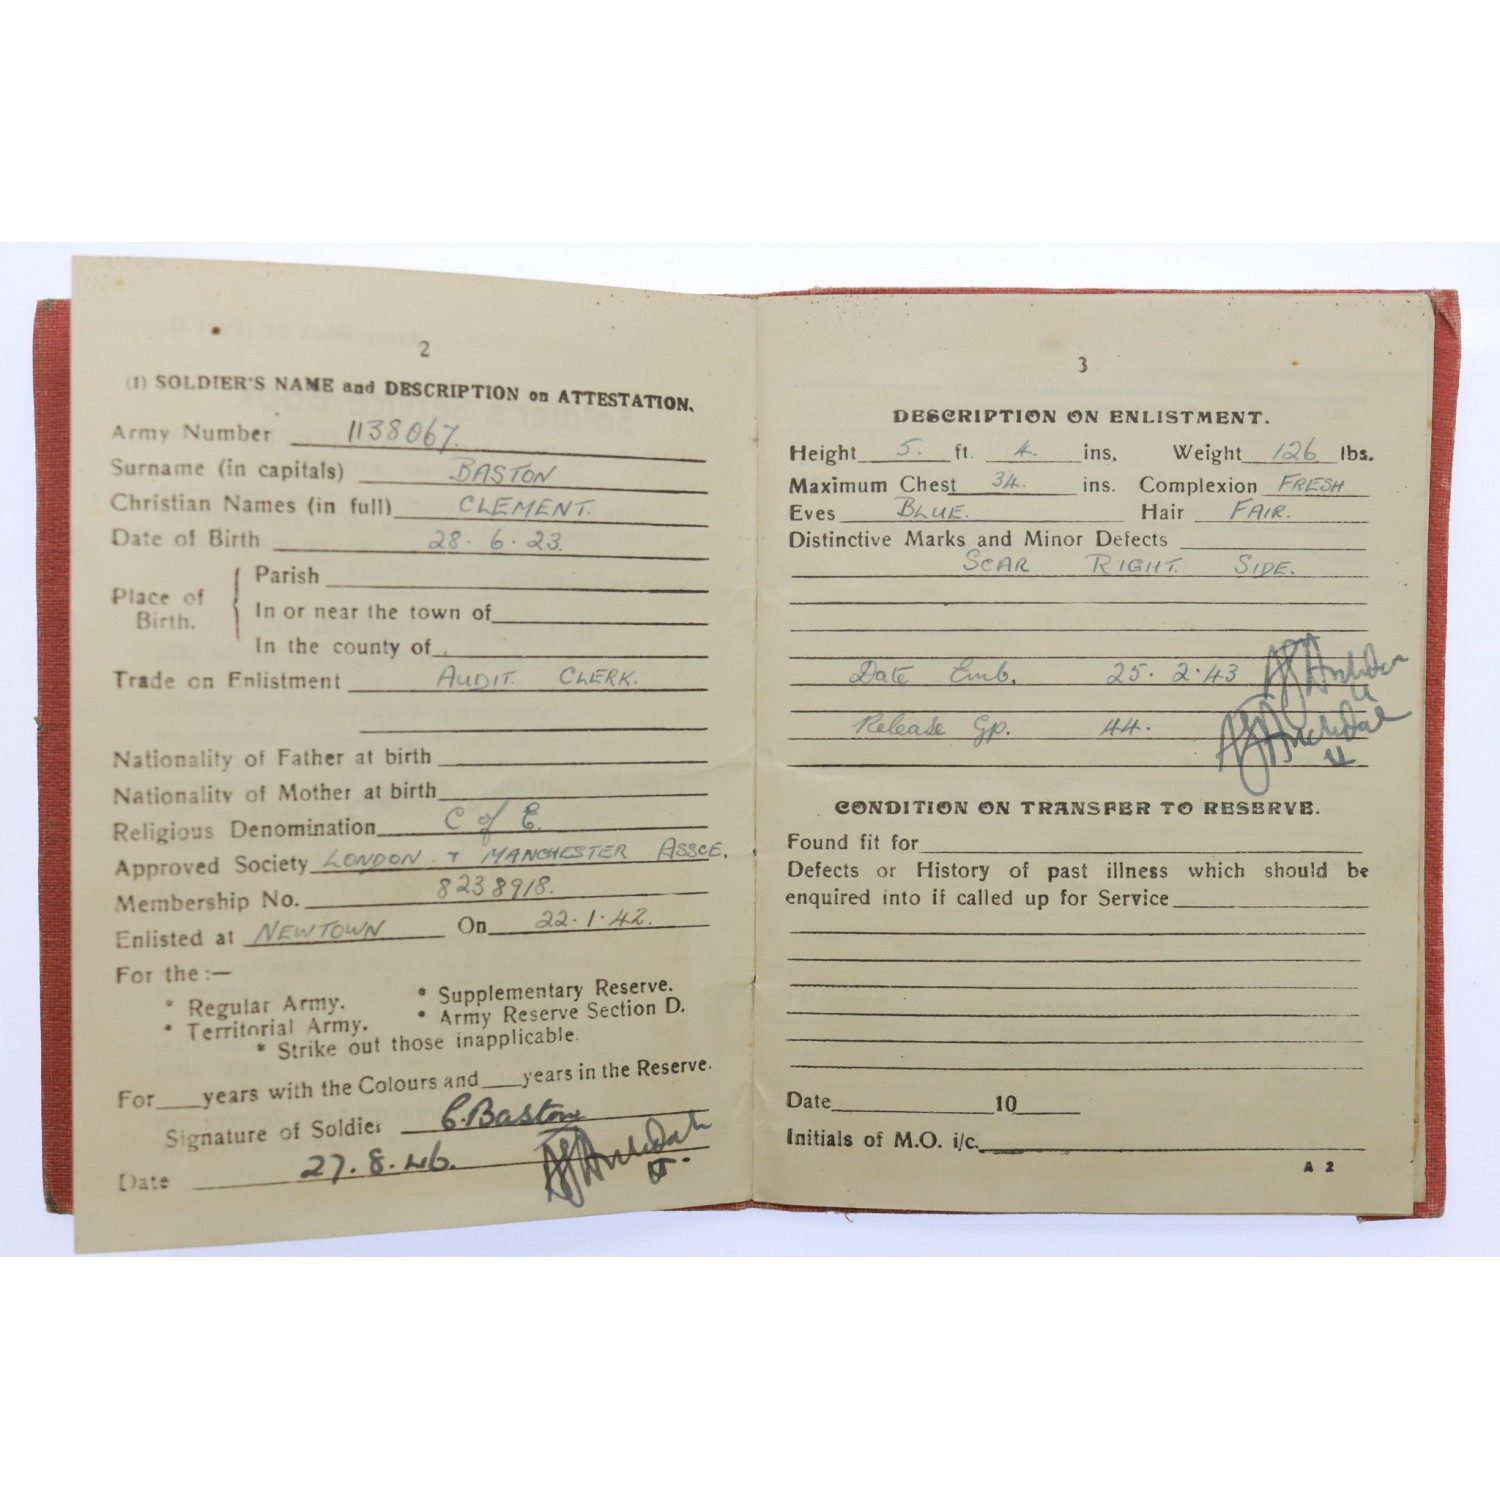 2
(1) SOLDIER'S NAME and DESCRIPTION on ATTESTATION.
Army Number 1138067.
Surname (in capitals) BASTON
Christian Names (in full) CLEMENT.
Date of Birth 28. 6. 23.
Place of Birth.
Parish
In or near the town of
In the county of
Trade on Enlistment AUDIT. CLERK.
Nationality of Father at birth
Nationality of Mother at birth
Religious Denomination C of E.
Approved Society LONDON + MANCHESTER ASSCE.
Membership No. 8238918.
Enlisted at NEWTOWN On 22.1.42.
For the :—
* Regular Army. * Supplementary Reserve.
* Territorial Army. * Army Reserve Section D.
* Strike out those inapplicable.
For ___ years with the Colours and ___ years in the Reserve.
Signature of Soldier C. Baston
Date 27.8.46.
3
DESCRIPTION ON ENLISTMENT.
Height 5. ft. 4. ins. Weight 126 lbs.
Maximum Chest 34. ins. Complexion FRESH
Eyes BLUE. Hair FAIR.
Distinctive Marks and Minor Defects
SCAR RIGHT. SIDE.
Date Emb. 25. 2. 43
Release Gp. 44.
CONDITION ON TRANSFER TO RESERVE.
Found fit for
Defects or History of past illness which should be
enquired into if called up for Service
Date 10
Initials of M.O. i/c.
A 2